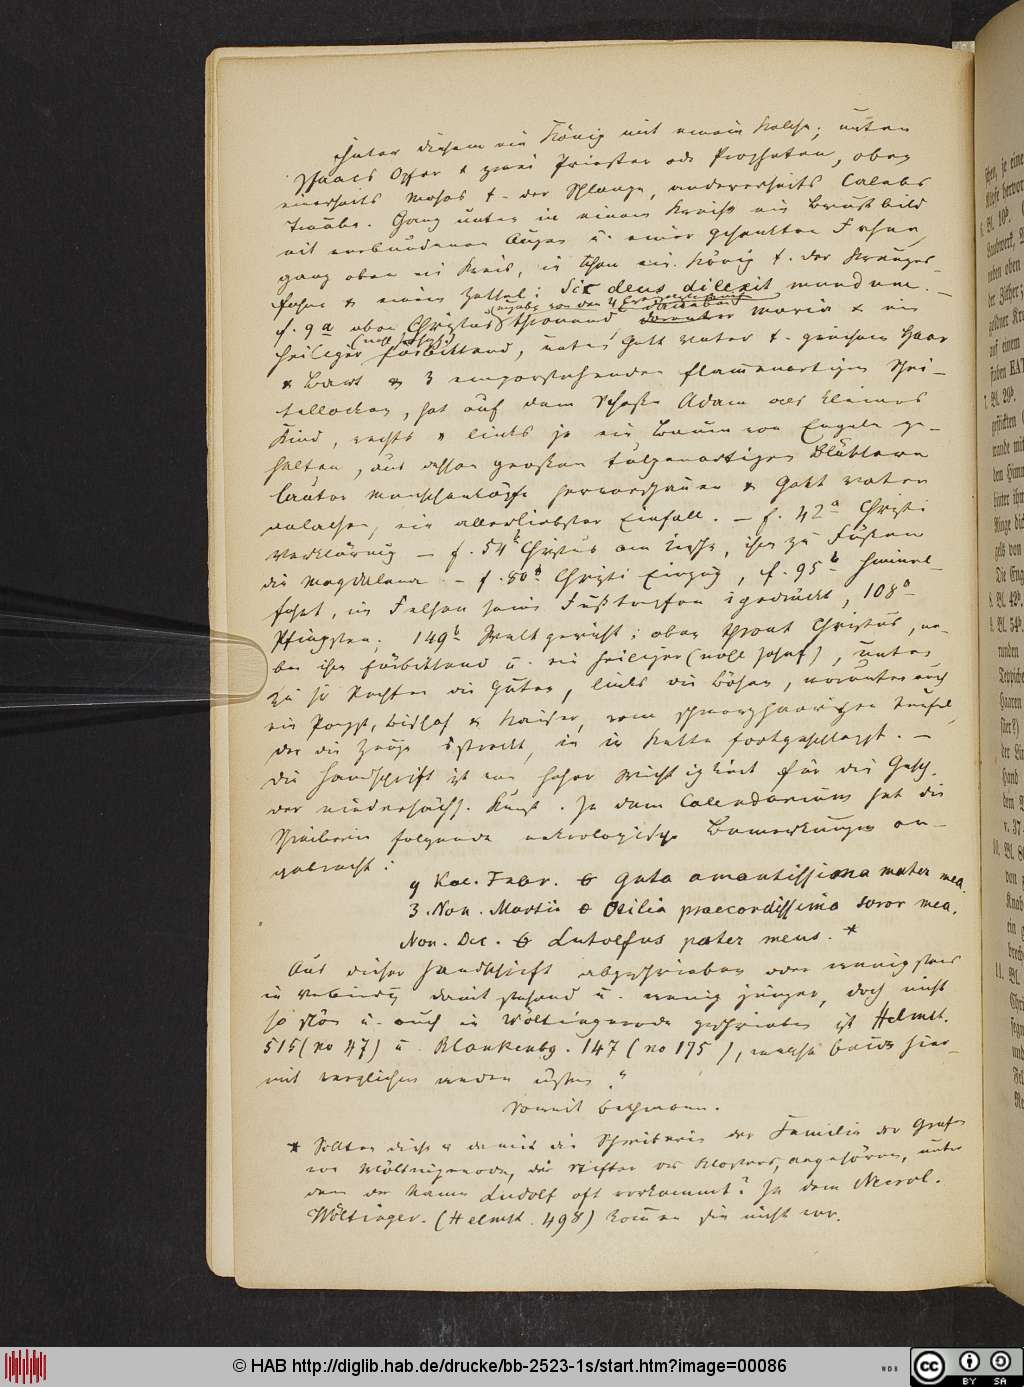 hinter diesem ein König mit einem Kelche; unten
Isaacs Opfer & zwei Priester oder Propheten, oben
einerseits Moses & der Schlange, andererseits Calebs
Traube. Ganz unten in einem Kreise ein Brustbild
mit verbundenen Augen u. einer gesenkten Fahne,
ganz oben im Kreis, ein König & der Kreuzes-
fahne & einem Zettel: Sic deus dilexit mundum. –
(umgeben von den 4 Evangelisten)
f. 9a oben Christus thronend darunter Maria & ein
(wohl Johs.)
Heiliger fürbittend, unten Gott Vater & greisem Haar
& Bart & 3 emporstehenden flammenartigen Schei-
tellocken, hat auf dem Schosse Adam als kleines
Kind, rechts & links je ein Baum von Engeln ge-
halten, aus dessen grossen tulpenartigen Blättern
lauter Menschenköpfe hervorschauen & Gott Vater
anlachen, ein allerliebster Einfall. – f. 42a Christi
Verklärung – f. 54b Christus am Tische, ihm zu Füssen
die Magdalena. – f. 80b Christi Einzug, f. 95b Himmel-
fahrt, im Felsen seine Fußtapfen eingedrückt, 108a
Pfingsten; 149b Weltgericht: oben thront Christus, ne-
ben ihm fürbittend u. ein Heiliger (wohl Josef), unten
zu s. Rechten die Guten, links die Bösen, worunter auch
ein Papst, Bischof & Kaiser, vom schwarzhaarigen Teufel,
der die Zunge streckt, in der Kette fortgeschleppt. –
Die Handschrift ist von hoher Wichtigkeit für die Gesch.
der niedersächs. Kunst. In dem Calendarium hat die
Schreiberin folgende nekrologische Bemerkungen an-
gebracht:
9 Kal. Febr. Guta amantissima mater mea
3. Non. Martii Otilia praecordissima soror mea.
Non. Dec. Lutolfus pater meus. *
Aus dieser Handschrift abgeschrieben oder wenigstens
in Verbindg damit stehend u. wenig jünger, doch nicht
so schön u. auch in Wöltingerode geschrieben ist Helmst.
515 (no 47) u. Blankenbg. 147 (no 175), welche beide hier-
mit verglichen werden müssen."
Soweit Bethmann.
* Sollten diese & damit die Schreiberin der Familie der Grafen
von Wöltingerode, der Stifter des Klosters, angehören, unter
denen der Name Ludolf oft vorkommt? In dem Necrol.
Wöltinger. (Helmst. 498) kommen sie nicht vor.
© HAB http://diglib.hab.de/drucke/bb-2523-1s/start.htm?image=00086
WDB
cc BY SA